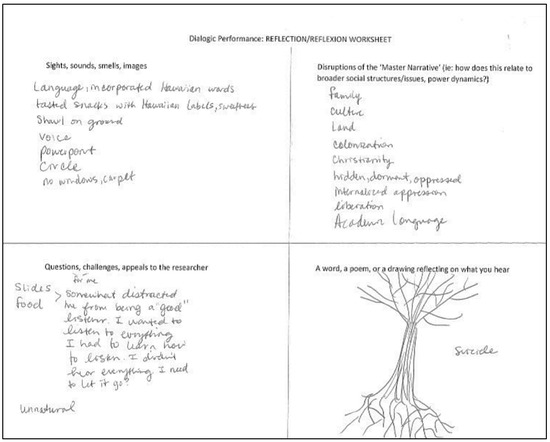 Dialogic Performance: REFLECTION/REFLEXION WORKSHEET
Sights, sounds, smells, images
Language, incorporated Hawaiian words
tasted snacks with Hawaiian Labels, sweetness
Shawl on ground
Voice
Powerpoint
Circle
no windows, carpet
Disruptions of the 'Master Narrative' (ie: how does this relate to
broader social structures/issues, power dynamics?)
Family
Culture
Land
Colonization
Christianity
hidden, dormant, oppressed
Internalized oppression
liberation
Academic Language
Questions, challenges, appeals to the researcher
for me
Slides > Somewhat distracted
Food me from being a "good"
listener. I wanted to
listen to everything
I had to learn how
to listen. I didn't
hear everything I need
to let it go?
unnatural
A word, a poem, or a drawing reflecting on what you hear
Suicide